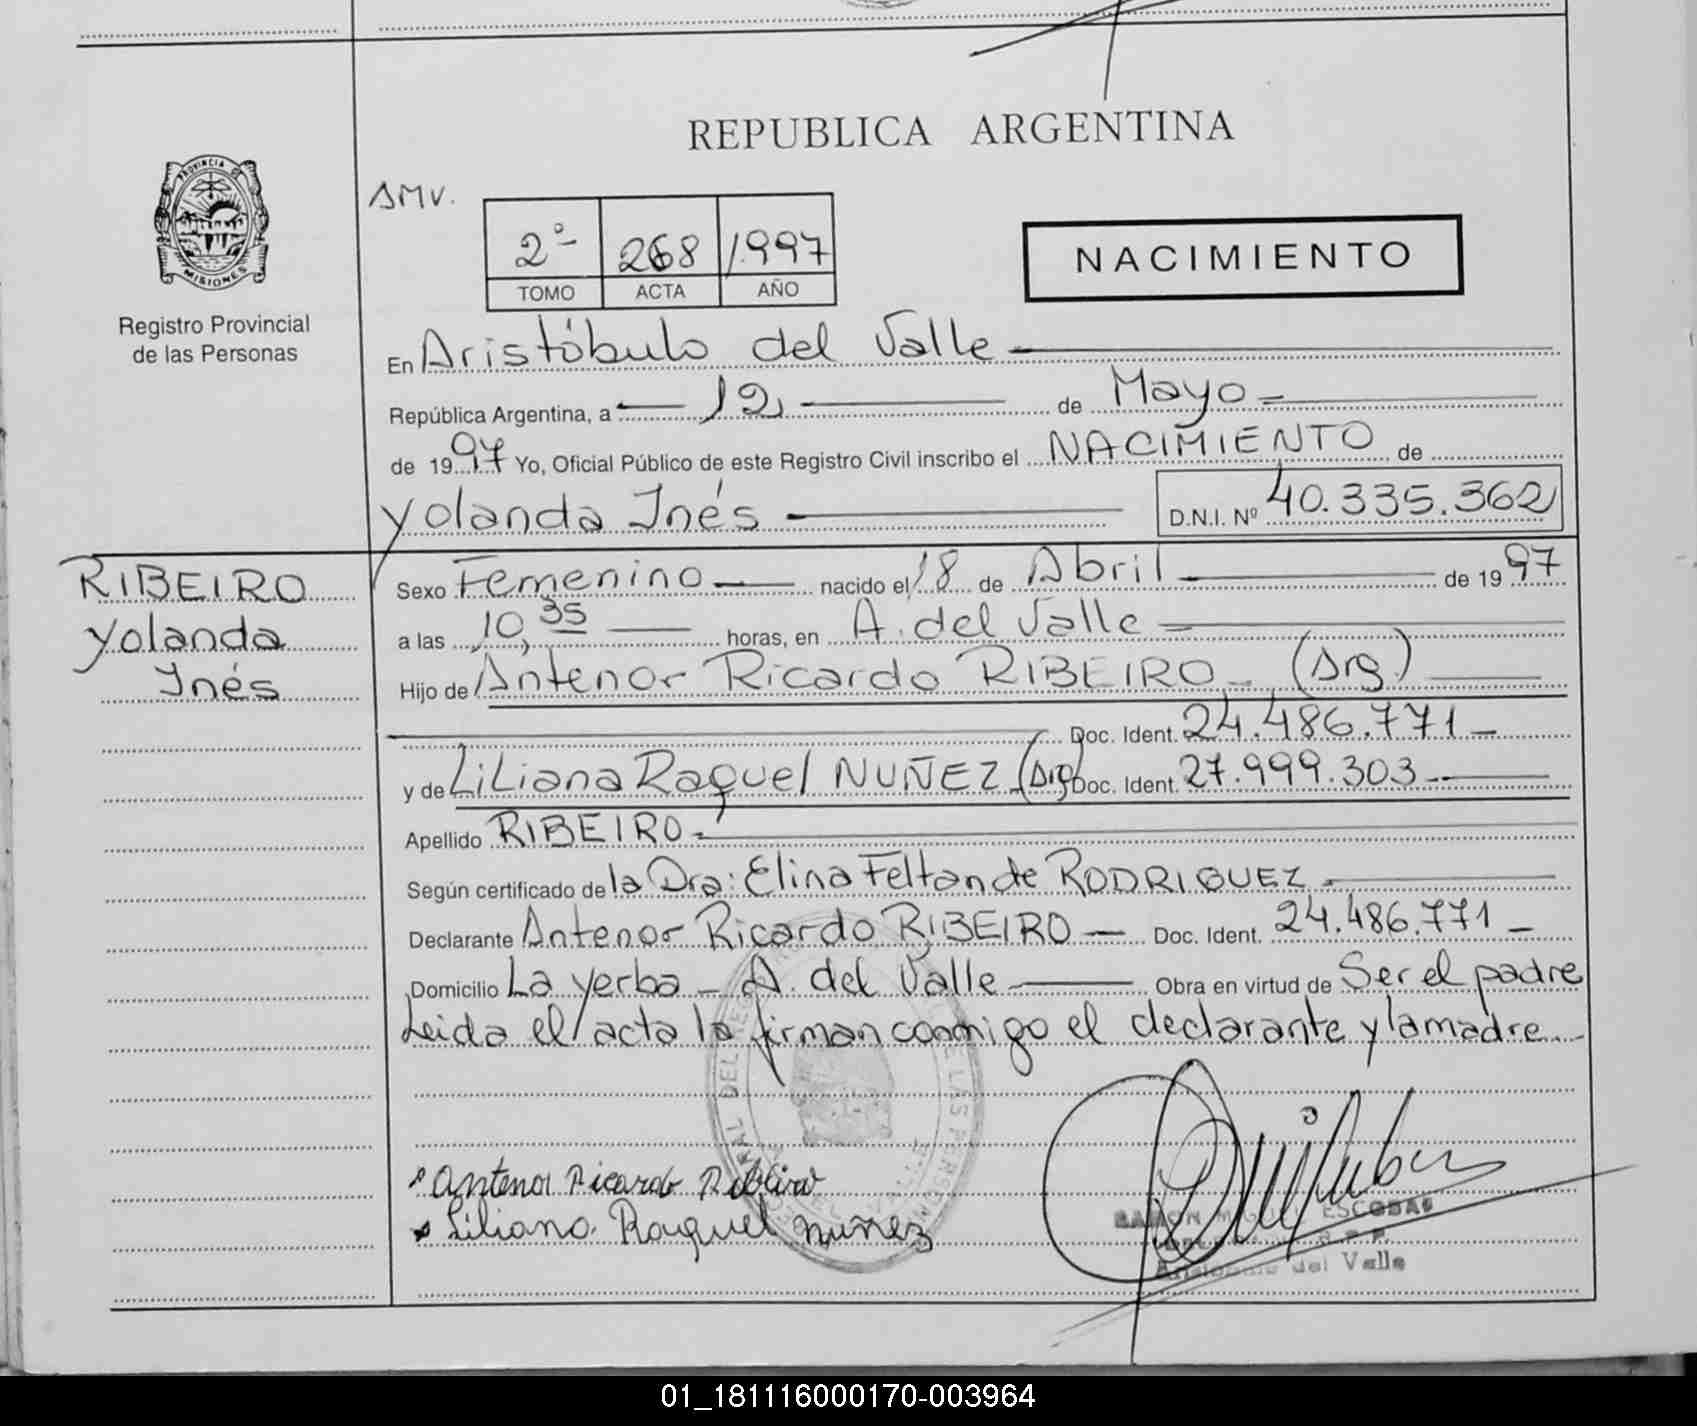 REPUBLICA ARGENTINA
PROVINCIA DE
MISIONES
Registro Provincial
de las Personas
AMV.
2º 268 1.997
TOMO ACTA AÑO
NACIMIENTO
En Aristóbulo del Valle
República Argentina, a 12 de Mayo
de 1997 Yo, Oficial Público de este Registro Civil inscribo el NACIMIENTO de
Yolanda Inés D.N.I. Nº 40.335.362
RIBEIRO
Yolanda
Inés
Sexo Femenino nacido el 18 de Abril de 1997
a las 10,35 horas, en A. del Valle
Hijo de Antenor Ricardo RIBEIRO (Arg)
Doc. Ident. 24.486.771
y de Liliana Raquel NUÑEZ (Arg) Doc. Ident. 27.999.303
Apellido RIBEIRO
Según certificado de la Dra: Elina Feltan de RODRIGUEZ
Declarante Antenor Ricardo RIBEIRO Doc. Ident. 24.486.771
Domicilio La Yerba - A. del Valle Obra en virtud de Ser el padre
Leida el acta la firman conmigo el declarante y la madre.
Antenor Ricardo Ribeiro
Liliana Raquel nuñez
RAMON MIGUEL ESCOBAR
Aristobulo del Valle
01_181116000170-003964